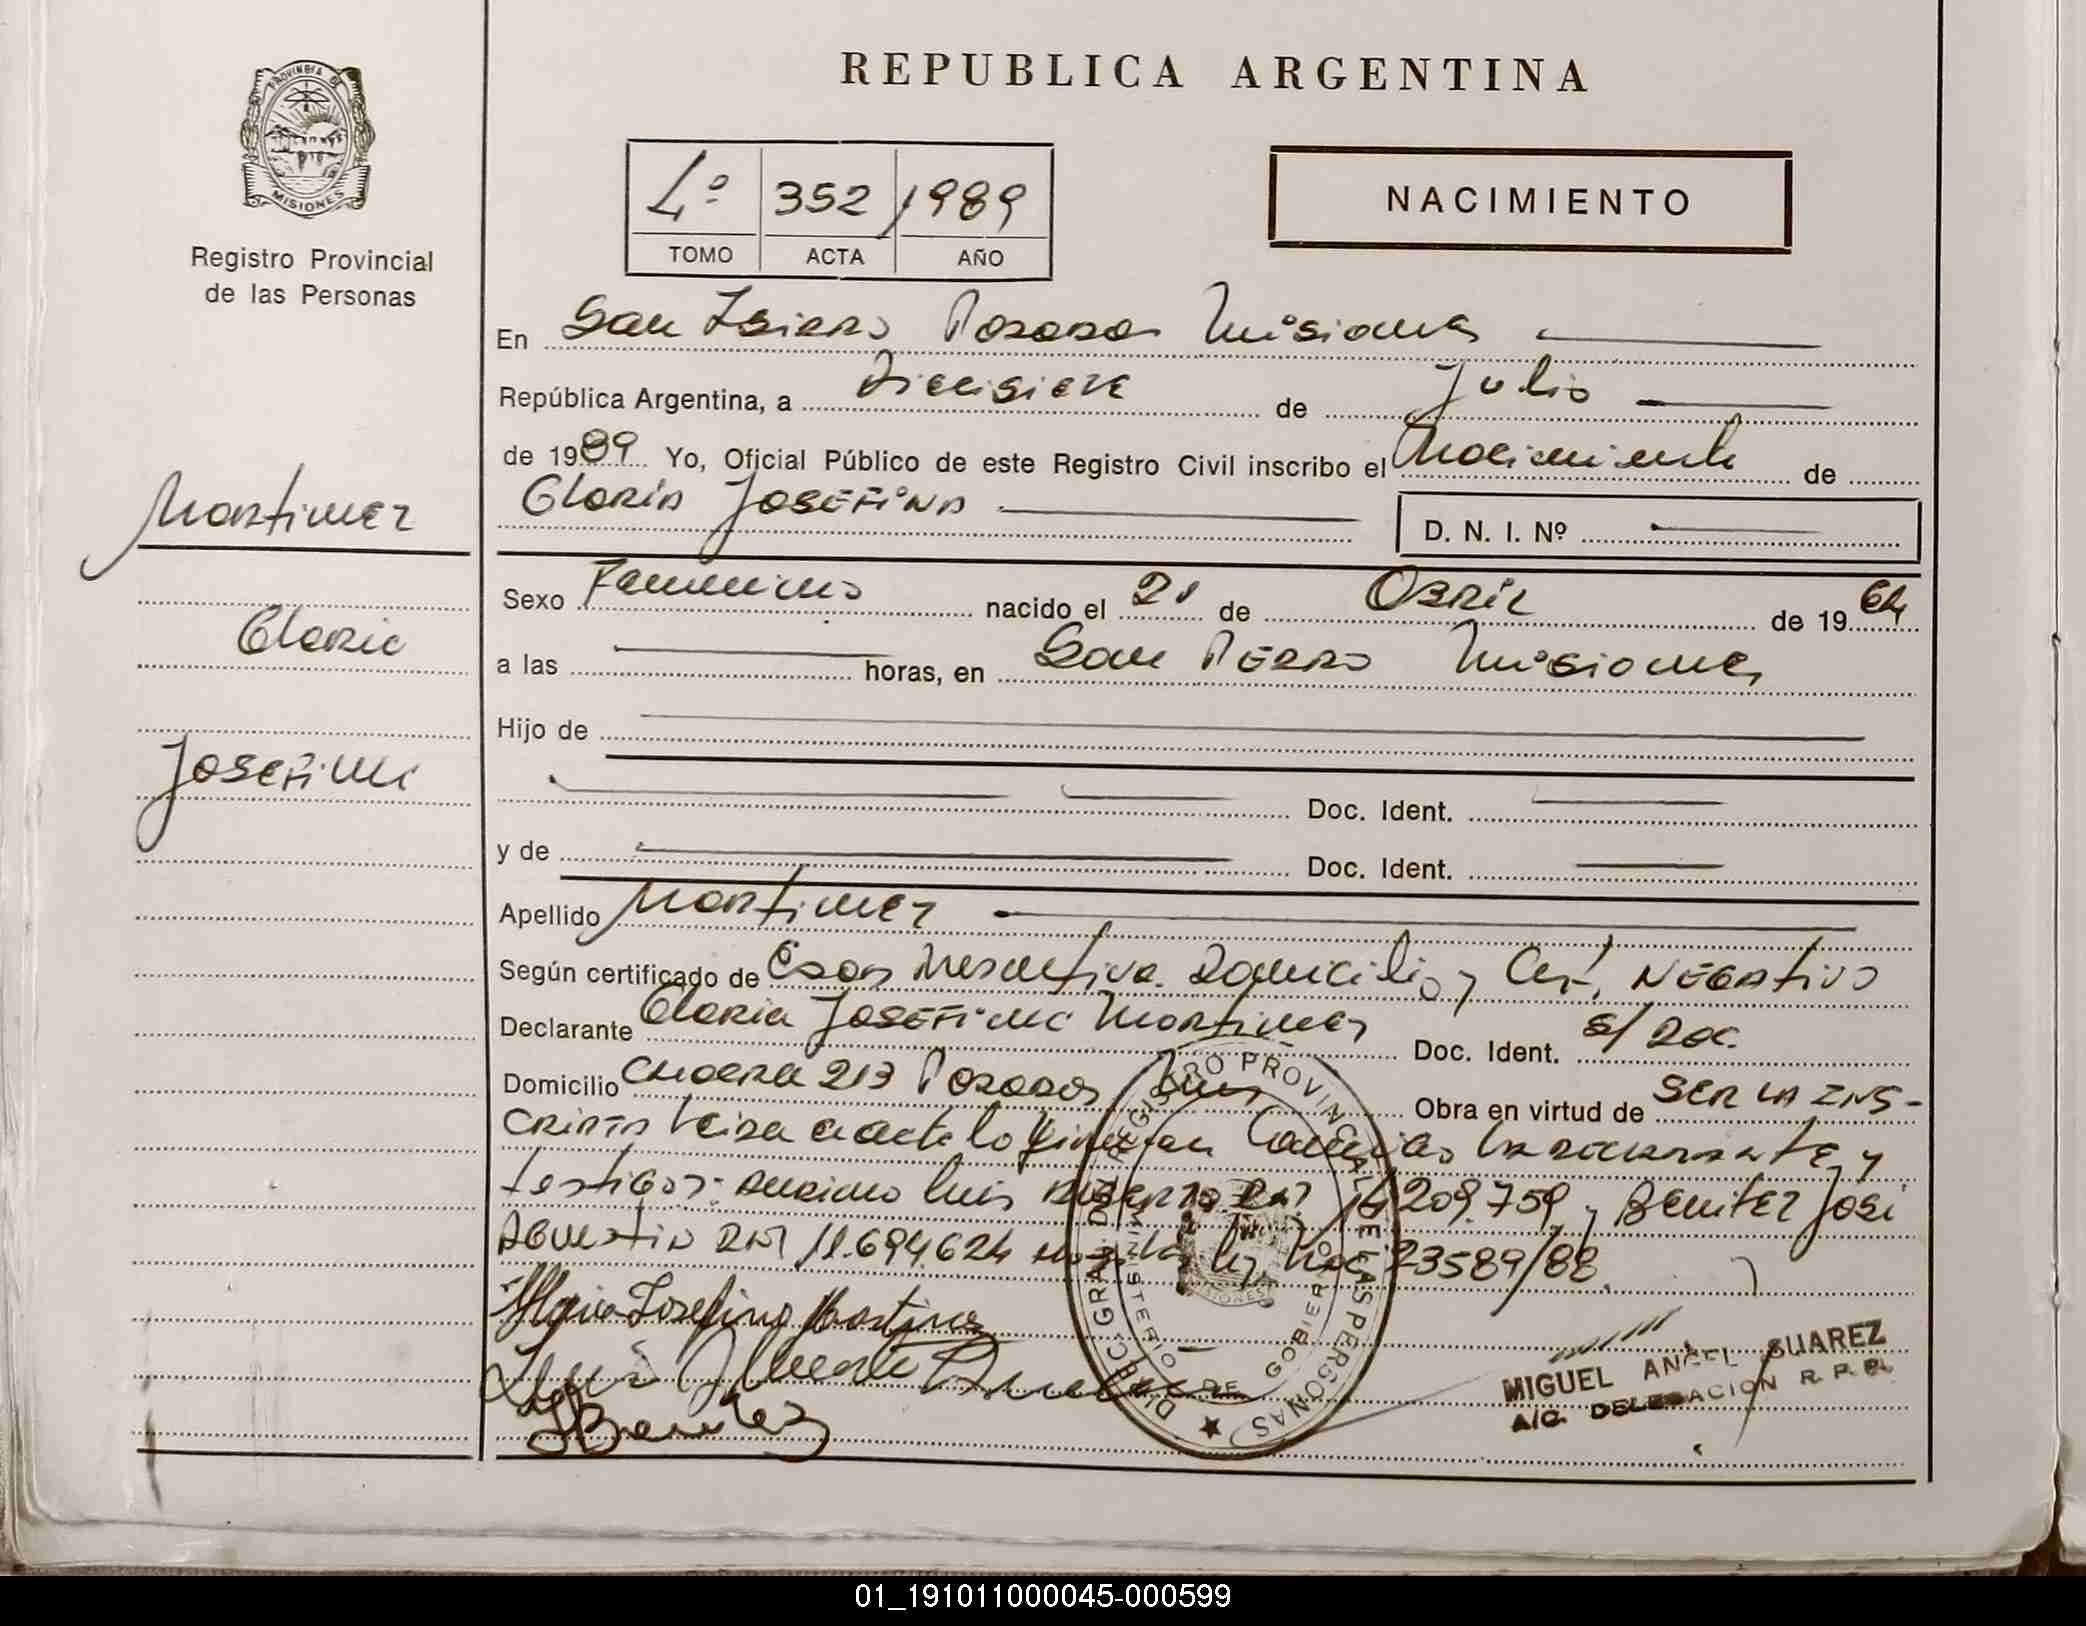 REPUBLICA ARGENTINA
PROVINCIA DE
MISIONES
Registro Provincial
de las Personas
4º 352 1989
TOMO ACTA AÑO
NACIMIENTO
En San Isidro Posadas Misiones
República Argentina, a Diecisiete de Julio
de 1989 Yo, Oficial Público de este Registro Civil inscribo el Nacimiento de
Gloria Josefina
D. N. I. Nº
Martinez
Gloria
Josefina
Sexo Femenino nacido el 21 de Abril de 1964
a las horas, en San Pedro Misiones
Hijo de
Doc. Ident.
y de Doc. Ident.
Apellido Martinez
Según certificado de Edad Presuntiva. Domicilio y Cert. Negativo
Declarante Gloria Josefina Martinez Doc. Ident. s/ Doc.
Domicilio Chacra 213 Posadas Mnes Obra en virtud de SER LA INS-
cripta Leida el acta lo firman Conmigo La declarante y
testigos: Luis DNI 209.759, y Benitez José
Agustin DNI 11.694.624 23589/88.
Gloria Josefina Martinez
Luis Alberto
Benitez
DIREC. GRAL. DEL REGISTRO PROVINCIAL DE LAS PERSONAS
MINISTERIO DE GOBIERNO
MISIONES
MIGUEL ANGEL SUAREZ
A/C. DELEGACION R. P. P.
01_191011000045-000599